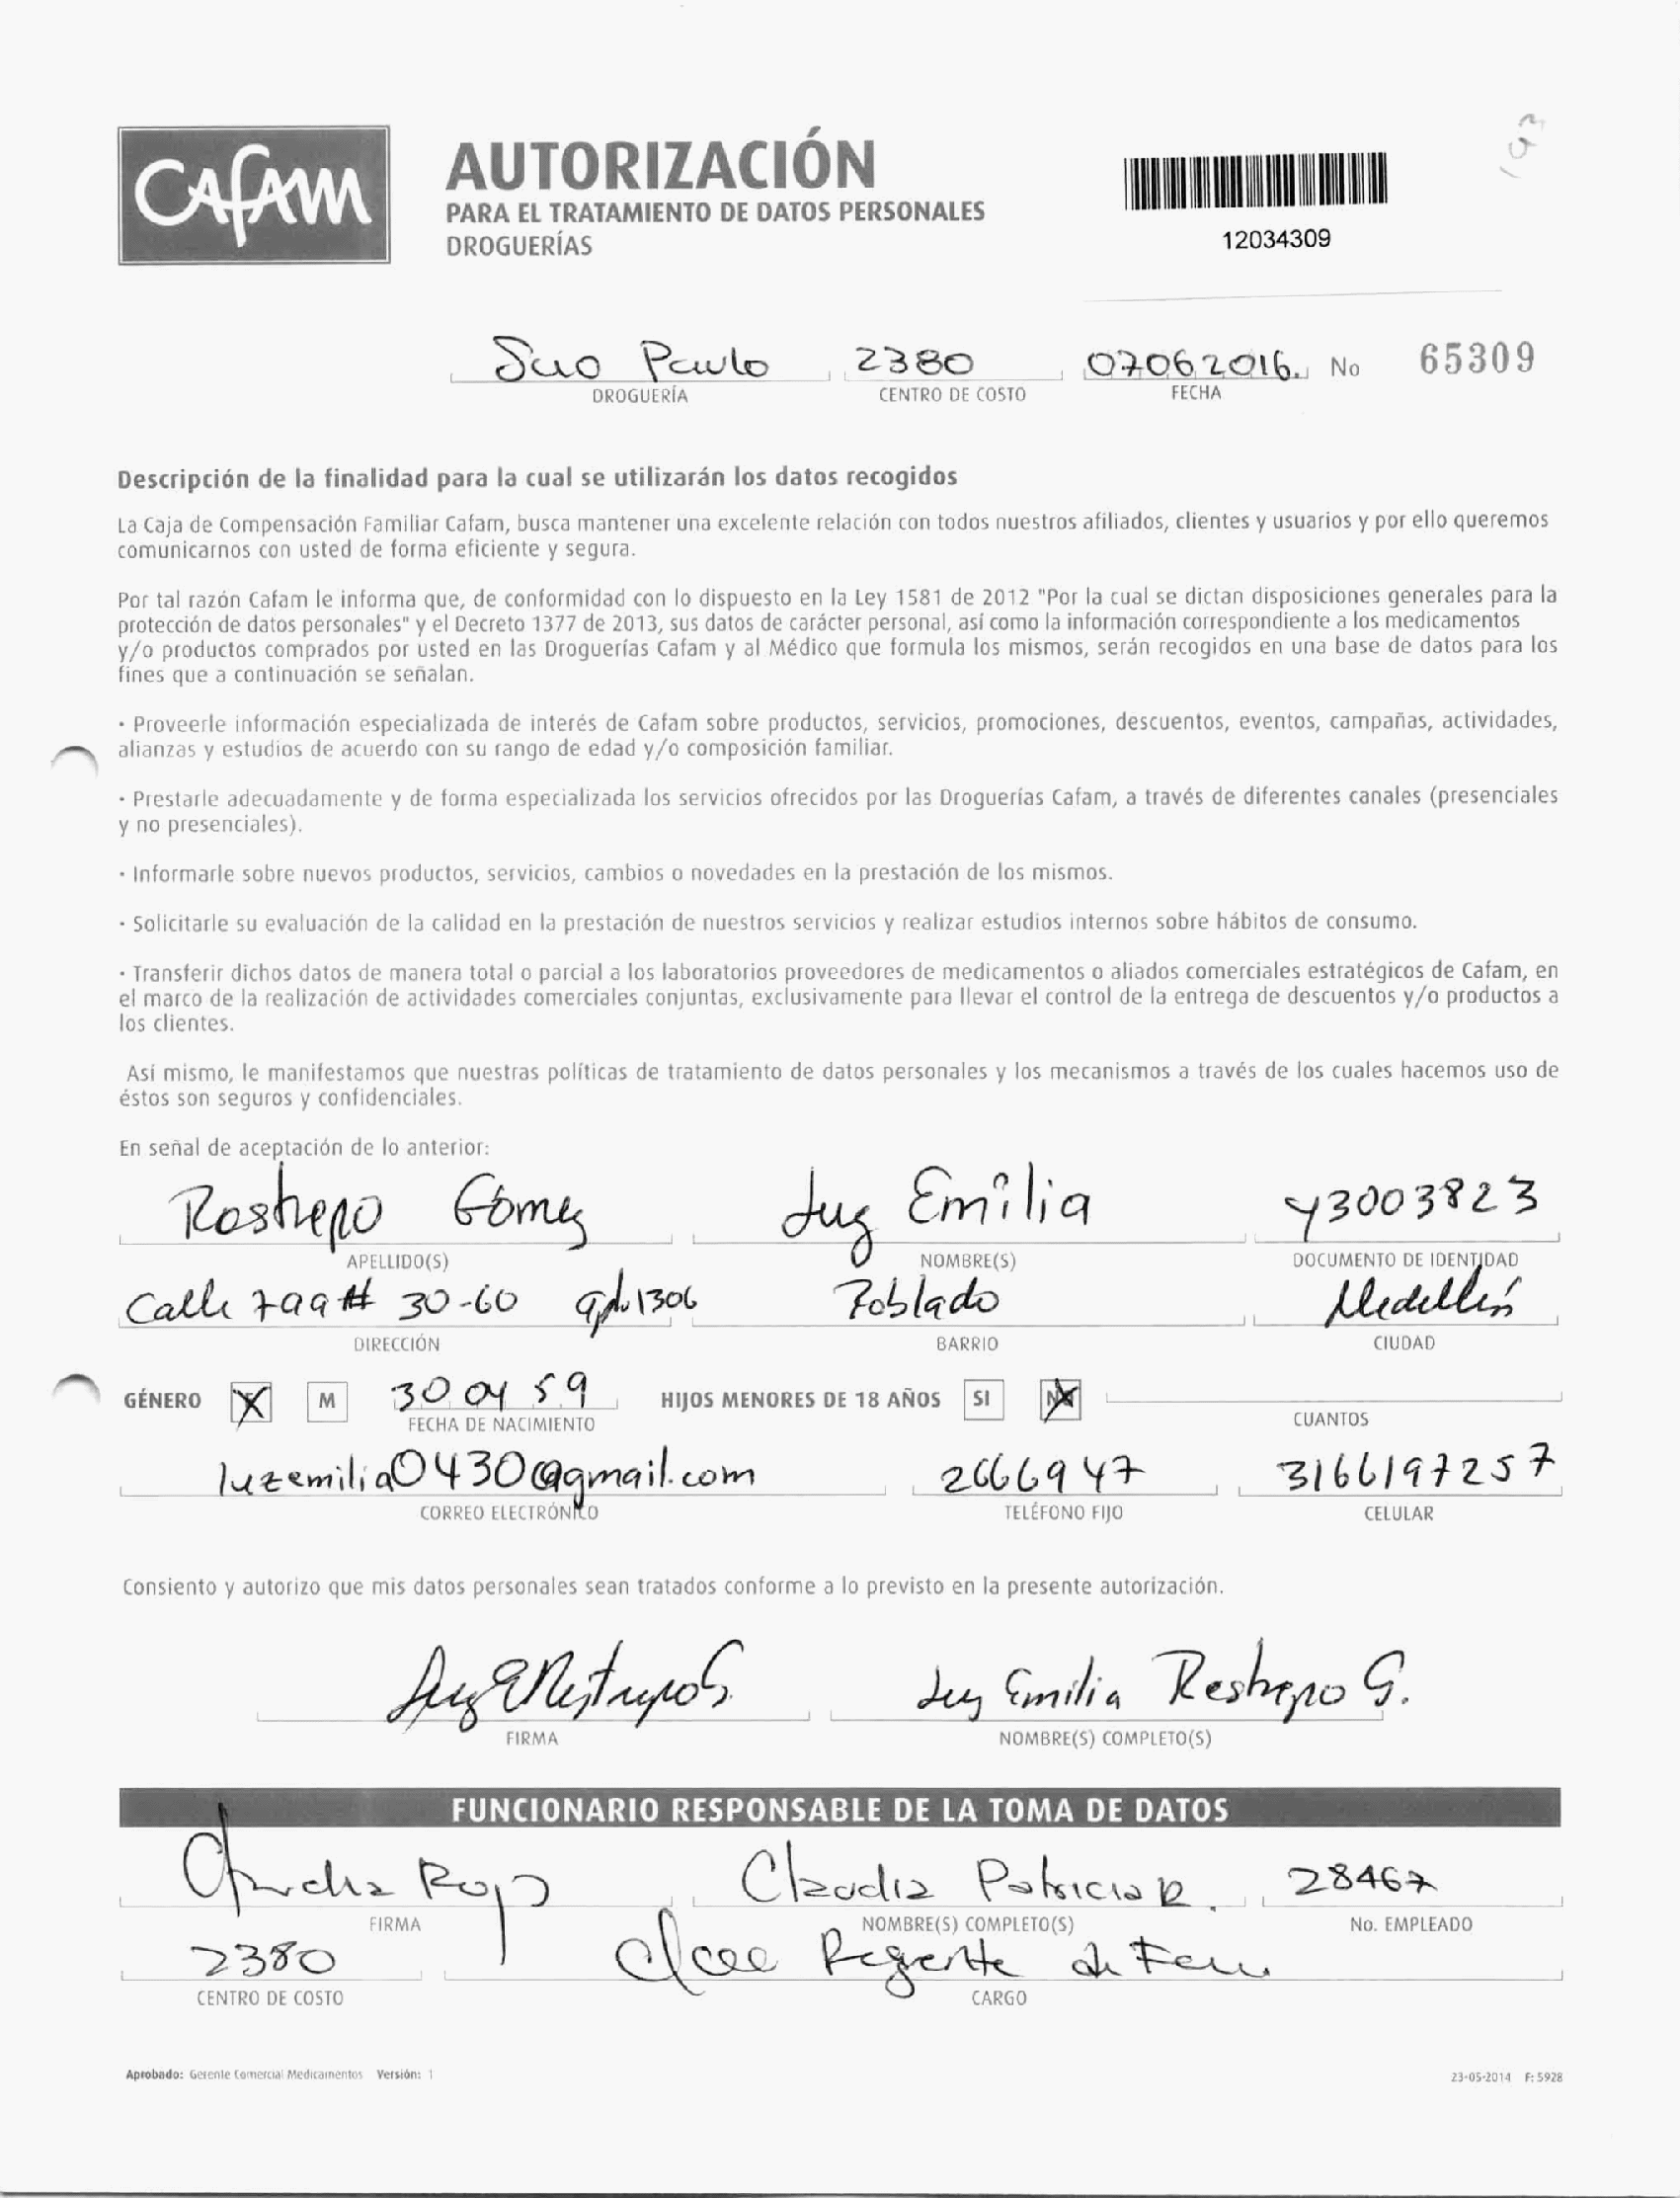 CAFAM
AUTORIZACIÓN
PARA EL TRATAMIENTO DE DATOS PERSONALES
DROGUERÍAS
12034309
Sao Paulo 2380 07062016. No 65309
DROGUERÍA CENTRO DE COSTO FECHA
Descripción de la finalidad para la cual se utilizarán los datos recogidos
La Caja de Compensación Familiar Cafam, busca mantener una excelente relación con todos nuestros afiliados, clientes y usuarios y por ello queremos
comunicarnos con usted de forma eficiente y segura.
Por tal razón Cafam le informa que, de conformidad con lo dispuesto en la Ley 1581 de 2012 "Por la cual se dictan disposiciones generales para la
protección de datos personales" y el Decreto 1377 de 2013, sus datos de carácter personal, así como la información correspondiente a los medicamentos
y/o productos comprados por usted en las Droguerías Cafam y al Médico que formula los mismos, serán recogidos en una base de datos para los
fines que a continuación se señalan.
· Proveerle información especializada de interés de Cafam sobre productos, servicios, promociones, descuentos, eventos, campañas, actividades,
alianzas y estudios de acuerdo con su rango de edad y/o composición familiar.
· Prestarle adecuadamente y de forma especializada los servicios ofrecidos por las Droguerías Cafam, a través de diferentes canales (presenciales
y no presenciales).
· Informarle sobre nuevos productos, servicios, cambios o novedades en la prestación de los mismos.
· Solicitarle su evaluación de la calidad en la prestación de nuestros servicios y realizar estudios internos sobre hábitos de consumo.
· Transferir dichos datos de manera total o parcial a los laboratorios proveedores de medicamentos o aliados comerciales estratégicos de Cafam, en
el marco de la realización de actividades comerciales conjuntas, exclusivamente para llevar el control de la entrega de descuentos y/o productos a
los clientes.
Así mismo, le manifestamos que nuestras políticas de tratamiento de datos personales y los mecanismos a través de los cuales hacemos uso de
éstos son seguros y confidenciales.
En señal de aceptación de lo anterior:
Restrepo Gómez Luz Emilia 43003823
APELLIDO(S) NOMBRE(S) DOCUMENTO DE IDENTIDAD
Calle 7aa # 30-60 apto 1306 Poblado Medellín
DIRECCIÓN BARRIO CIUDAD
GÉNERO X M 30 04 59 HIJOS MENORES DE 18 AÑOS SI NO
FECHA DE NACIMIENTO CUANTOS
luzemilia0430@gmail.com 2666947 3166197257
CORREO ELECTRÓNICO TELÉFONO FIJO CELULAR
Consiento y autorizo que mis datos personales sean tratados conforme a lo previsto en la presente autorización.
Luz E Restrepo G Luz Emilia Restrepo G.
FIRMA NOMBRE(S) COMPLETO(S)
FUNCIONARIO RESPONSABLE DE LA TOMA DE DATOS
Claudia Patricia R. 28467
FIRMA NOMBRE(S) COMPLETO(S) No. EMPLEADO
2380 Regente de
CENTRO DE COSTO CARGO
Aprobado: Gerente Comercial Medicamentos Versión: 1
23-05-2014 F: 5928